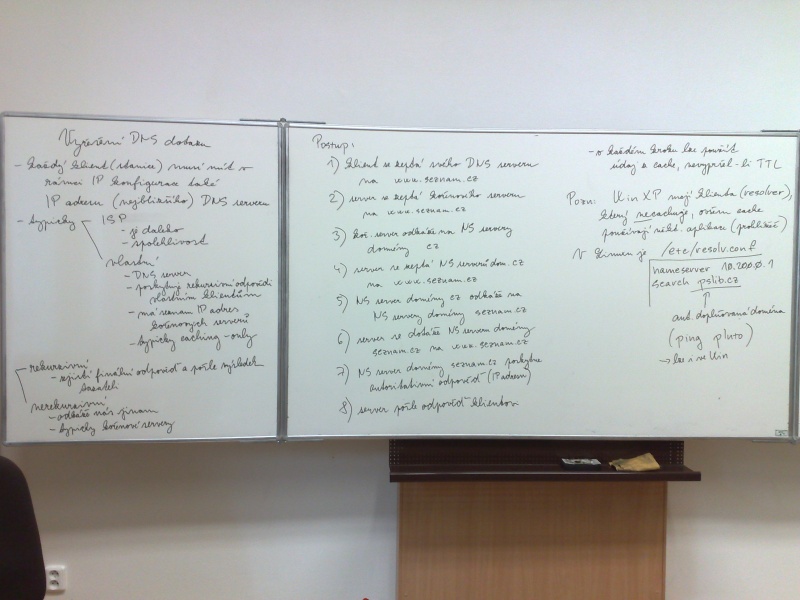 Vyřešení DNS dotazu
- každý klient (stanice) musí mít v
rámci IP konfigurace také
IP adresu (nejbližšího) DNS serveru
- typicky
ISP
- je daleko
- spolehlivost
vlastní
- DNS server
- poskytuje rekurzivní odpovědi
vlastním klientům
- má seznam IP adres
kořenových serverů
- typicky caching-only
rekurzivní
- zjistí finální odpověď a pošle výsledek
tazateli
nerekurzivní
- odkáže nás jinam
- typicky kořenové servery
Postup:
1) klient se zeptá svého DNS serveru
na www.seznam.cz
2) server se zeptá kořenového serveru
na www.seznam.cz
3) koř. server odkáže na NS servery
domény cz
4) server se zeptá NS serverů dom. cz
na www.seznam.cz
5) NS server domény cz odkáže na
NS servery domény seznam.cz
6) server se dotáže NS serveru domény
seznam.cz na www.seznam.cz
7) NS server domény seznam.cz poskytne
autoritativní odpověď (IP adresu)
8) server pošle odpověď klientovi
- v každém kroku lze použít
údaj z cache, nevypršel-li TTL
Pozn: Win XP mají klienta (resolver),
který necachuje, ovšem cache
používají někt. aplikace (prohlížeč)
V Linuxu je /etc/resolv.conf
nameserver 10.200.0.1
search pslib.cz
aut. doplňovaná doména
(ping pluto)
→ lze i ve Win